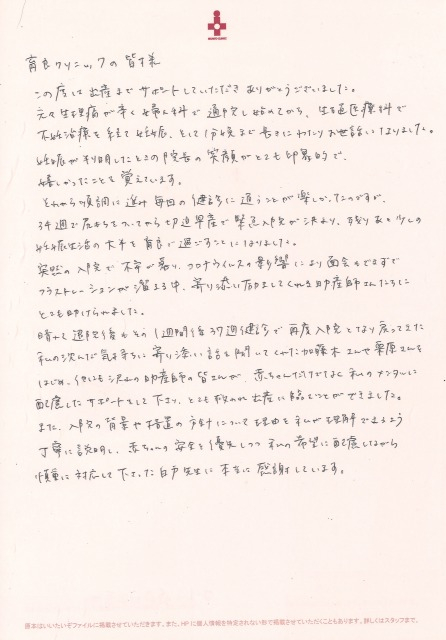 育良クリニックの皆様
この度は出産までサポートしていただきありがとうございました。
元々生理痛が辛く婦人科で通院し始めてから、生殖医療科で
不妊治療を経て妊娠、そして分娩まで長きにわたりお世話になりました。
妊娠が判明したときの院長の笑顔がとても印象的で、
嬉しかったことを覚えています。
それから順調に進み毎回の健診に通うことが楽しかったのですが、
34週で尿もちをついてから切迫早産で緊急入院が決まり、残りあと少しの
妊娠生活の大半を育良で過ごすことになりました。
突然の入院で不安が募り、コロナウイルスの影響により面会もできず
フラストレーションが溜まる中、寄り添い励ましてくれる助産師さんたちに
とても助けられました。
晴れて退院後もその1週間後37週健診で再度入院となり戻ってきた
私の沈んだ気持ちに寄り添い話を聞いてくれた加藤木さんや栗原さんを
はじめ、他にも沢山の助産師の皆さんが、赤ちゃんだけでなく私のメンタルに
配慮したサポートをして下さり、とても救われ出産に臨むことができました。
また、入院の背景や措置の方針について理由を私が理解できるよう
丁寧に説明し、赤ちゃんの安全を優先しつつ私の希望に配慮しながら
慎重に対応して下さった白戸先生に本当に感謝しています。
原本はいいたいぞファイルに掲載させていただきます。また、HPに個人情報を特定されない形で掲載させていただくこともあります。詳しくはスタッフまで。